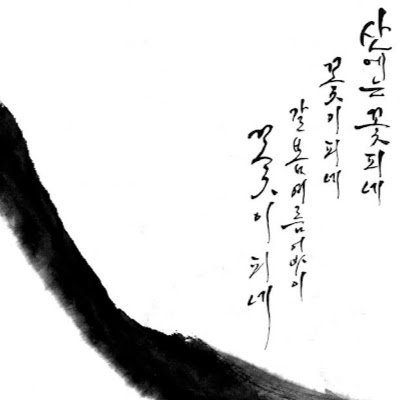 산에는 꽃 피네
꽃이 피네
갈 봄 여름 없이
꽃이 피네